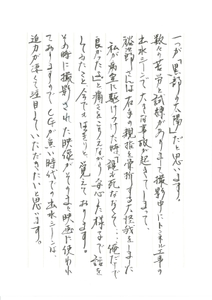 一つが「黒部の太陽」だと思います。
数々の苦労と試練があり、撮影中にトンネル工事の
出水シーンで大きな事故が起きてしまって、
裕次郎さんは右手の親指を骨折する大怪我をしました
私が病室に駆けつけた時「誰も死ななくて、俺だけで
良かった」と痛さをこらえながら安心した様子で話を
していたことを今でもはっきりと覚えております。
その時に撮影された映像がそのまま映画に使われ
ておりますので、CGが無い時代の出水シーンは
迫力が凄くて注目していただきたいと思います。